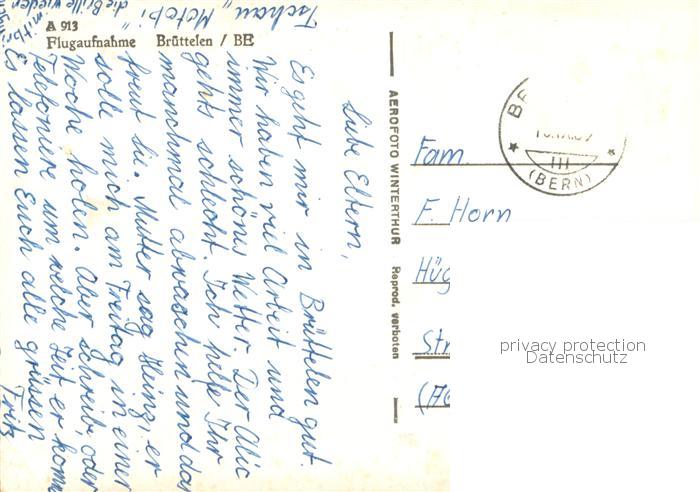 A 913
Flugaufnahme Brüttelen / BE
Liebe Eltern,
Es geht mir in Brüttelen gut.
Wir haben viel Arbeit und
immer schönes Wetter. Der Alic
gehts schlecht. Ich helfe Ihr
manchmal abwaschen und da
freut Sie. Mutter sag Heinz, er
solle mich am Freitag in einer
Woche holen. Aber schreib, oder
Telefoniere um welche Zeit er komm
Es lassen Euch alle grüssen
Fritz
Tschau "Motobi"
die Brille wieder
AEROFOTO WINTERTHUR Reprod. verboten
BR
III
(BERN)
Fam.
F. Horn
Hüg
Str
privacy protection
Datenschutz